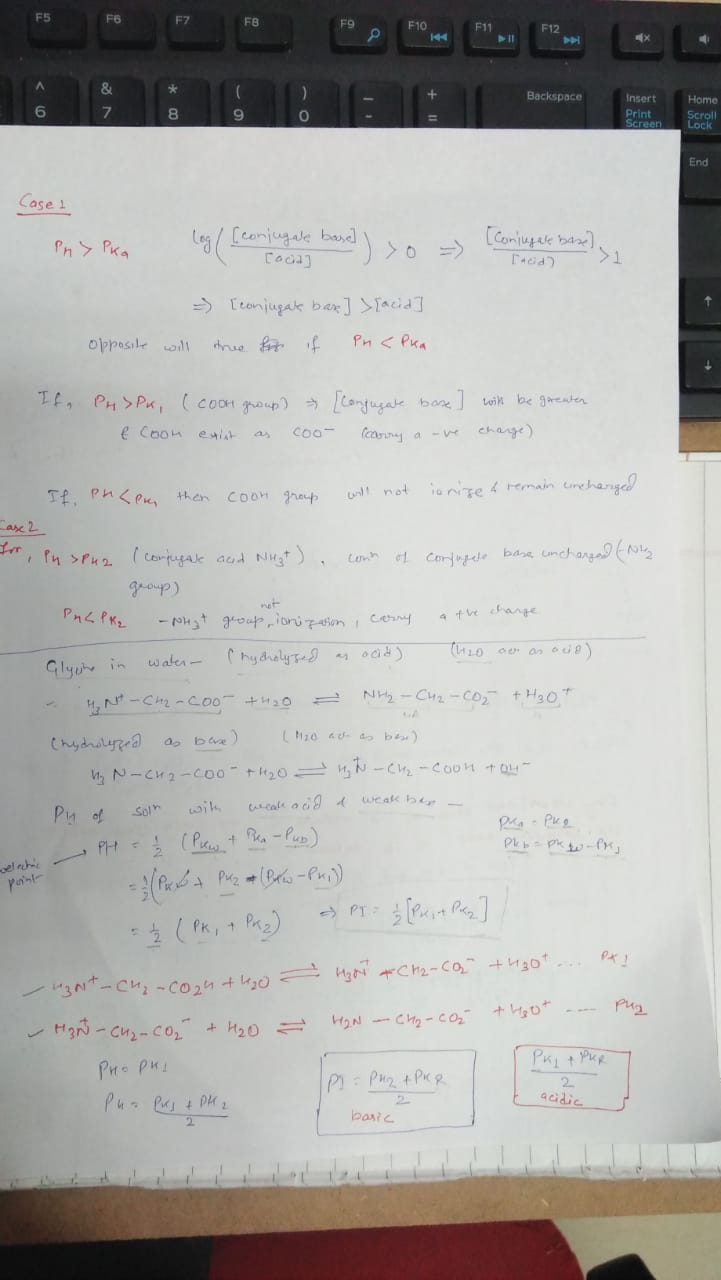 F5 F6 F7 F8 F9 F10 F11 F12
^ & * ( ) _ + Backspace Insert Home
6 7 8 9 0 - = Print Screen Scroll Lock
End
Case 1
PH > PKa log([conjugate base]/[acid]) > 0 ⇒ [Conjugate base]/[acid] > 1
⇒ [conjugate base] > [acid]
opposite will true if PH < PKa
If, PH > PK1 (COOH group) ⇒ [Conjugate base] will be greater
& COOH exist as COO⁻ (carry a -ve charge)
If, PH < PK1 then COOH group will not ionize & remain uncharged
Case 2
For, PH > PK2 (conjugate acid NH3⁺), conn of conjugate base uncharged (-NH2
group)
PH < PK2 -NH3⁺ group not ionization, carry a +ve charge
Glycine in water - (hydrolyzed as acid) (H2O act as acid)
H3N⁺-CH2-COO⁻ + H2O ⇌ NH2-CH2-CO2⁻ + H3O⁺
(hydrolyzed as base) (H2O act as base)
H3N-CH2-COO⁻ + H2O ⇌ H3N⁺-CH2-COOH + OH⁻
PH of soln with weak acid & weak base -
oelectric point → PH = 1/2 (PKw + PKa - PKb) PKa = PK2
PKb = PKw - PK1
= 1/2 (PKw + PK2 - (PKw - PK1))
= 1/2 (PK1 + PK2) ⇒ PI = 1/2 [PK1 + PK2]
H3N⁺-CH2-CO2H + H2O ⇌ H3N⁺-CH2-CO2⁻ + H3O⁺ ... PK1
H3N⁺-CH2-CO2⁻ + H2O ⇌ H2N-CH2-CO2⁻ + H3O⁺ --- PK2
PH = PK1
PH = PK1 + PK2 / 2
PI = PK2 + PKR / 2
basic
PK1 + PKR / 2
acidic